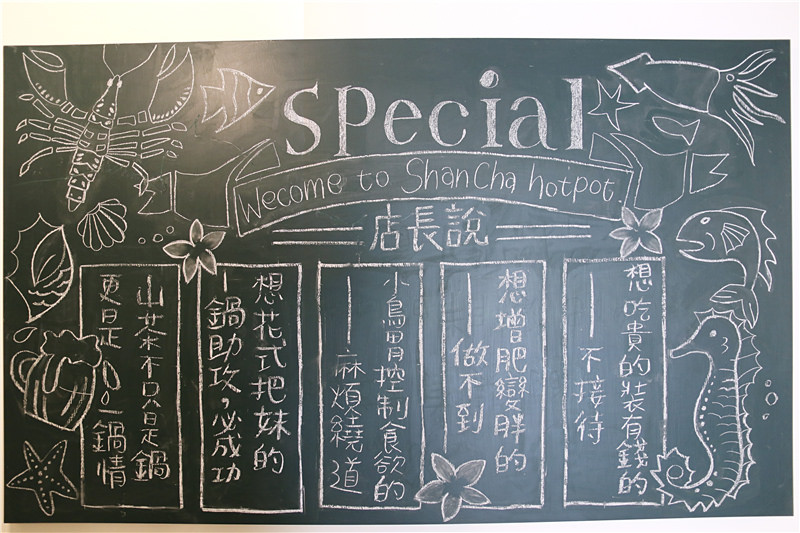 special
Wecome to ShanCha hotpot.
店長說
想吃貴的裝有錢的
—不接待
想增肥變胖的
—做不到
小鳥胃控制食欲的
—麻煩繞道
想花式把妹的
—鍋助攻，必成功
山茶不只是鍋
更是 一鍋情